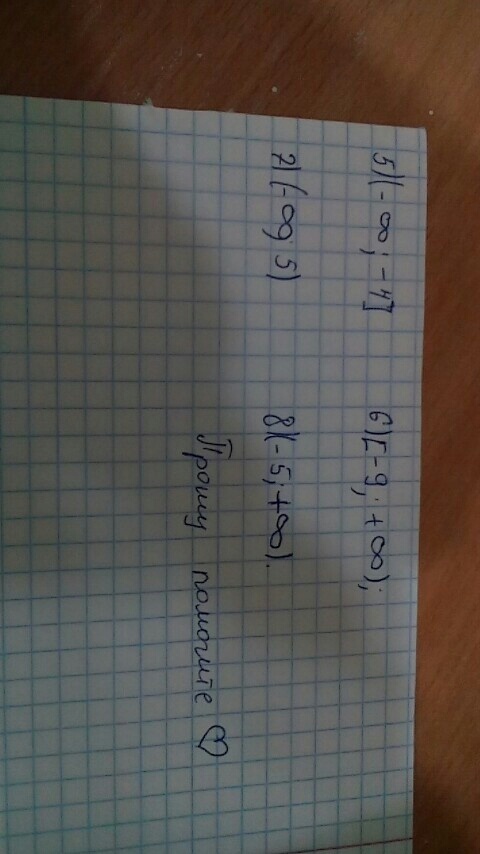 5) (-∞; -4] 6) [-9; +∞);
7) (-∞; 5) 8) (-5; +∞).
Прошу помогите ♡